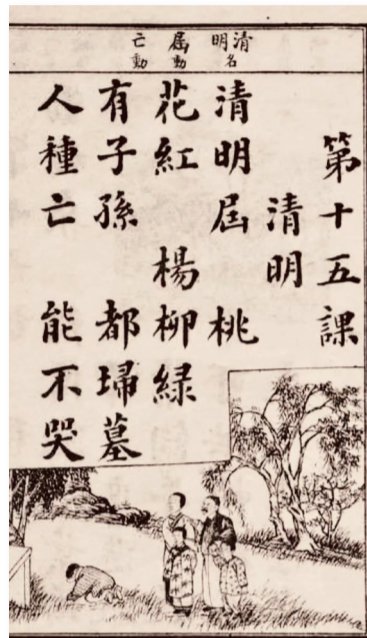 清明名
屆動
亡動
第十五課
清明
清明屆 桃
花紅 楊柳緑
有子孫 都埽墓
人種亡 能不哭